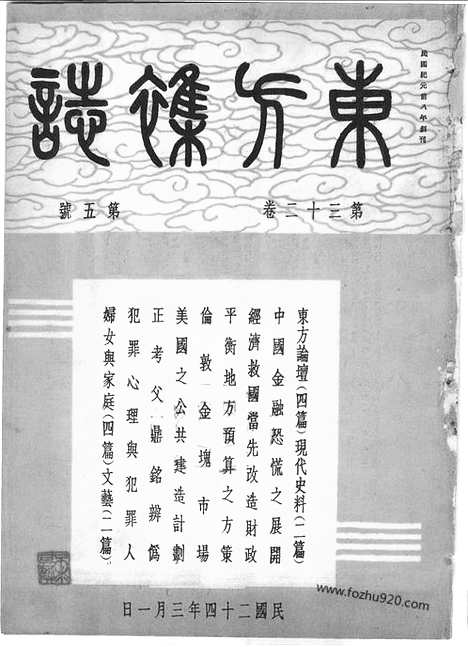 民國紀元前八年創刊
東方雜誌
第三十二卷
第五號
東方論壇(四篇)現代史料(二篇)
中國金融恐慌之展開
經濟救國當先改造財政
平衡地方預算之方策
倫敦金塊市場
美國之公共建造計劃
正考父鼎銘辨僞
犯罪心理與犯罪人
婦女與家庭(四篇)文藝(二篇)
民國二十四年三月一日
www.fozhu920.com